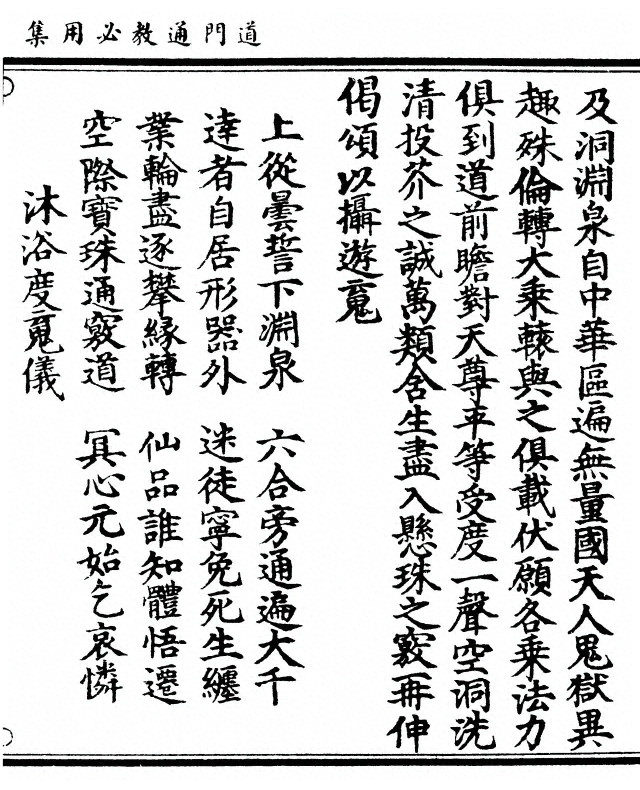 道門通教必用集
及洞淵泉自中華區遍無量國天人鬼獄異
趣殊倫轉大乘轅與之俱載伏願各乘法力
俱到道前瞻對天尊平等受度一聲空洞洗
清投芥之誠萬類含生盡入懸珠之竅再伸
偈頌以攝遊䰟
上從曇誓下淵泉　六合旁通遍大千
達者自居形器外　迷徒寧免死生纏
業輪盡逐攀緣轉　仙品誰知體悟遷
空際寶珠通竅道　冥心元始乞哀憐
沐浴度䰟儀